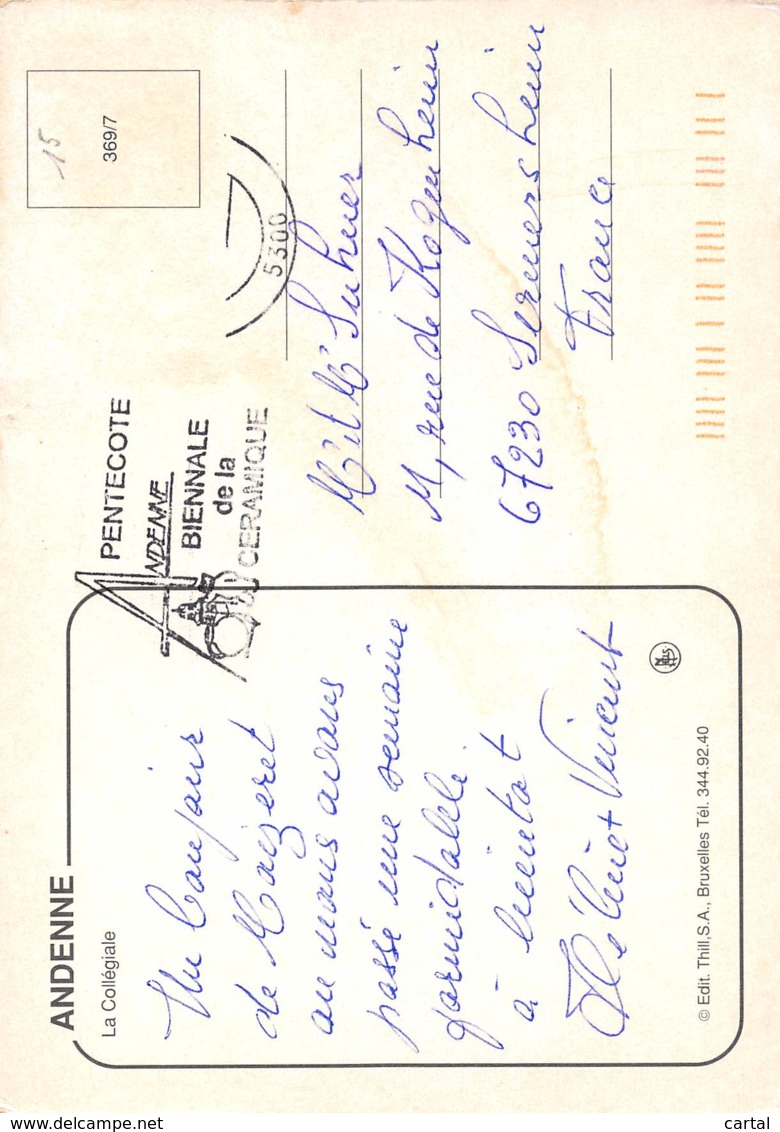 ANDENNE
La Collégiale
Un Bonjour
de Maizeret
ou nous avons
passé une semaine
formidable
à bientot
Vincent
© Edit. Thill,S.A., Bruxelles Tél. 344.92.40
PENTECOTE
ANDENNE
BIENNALE
de la
CERAMIQUE
5300
15
369/7
Mr et Me Suhner
rue de Kogenheim
67230 Sermersheim
France
www.delcampe.net
cartal